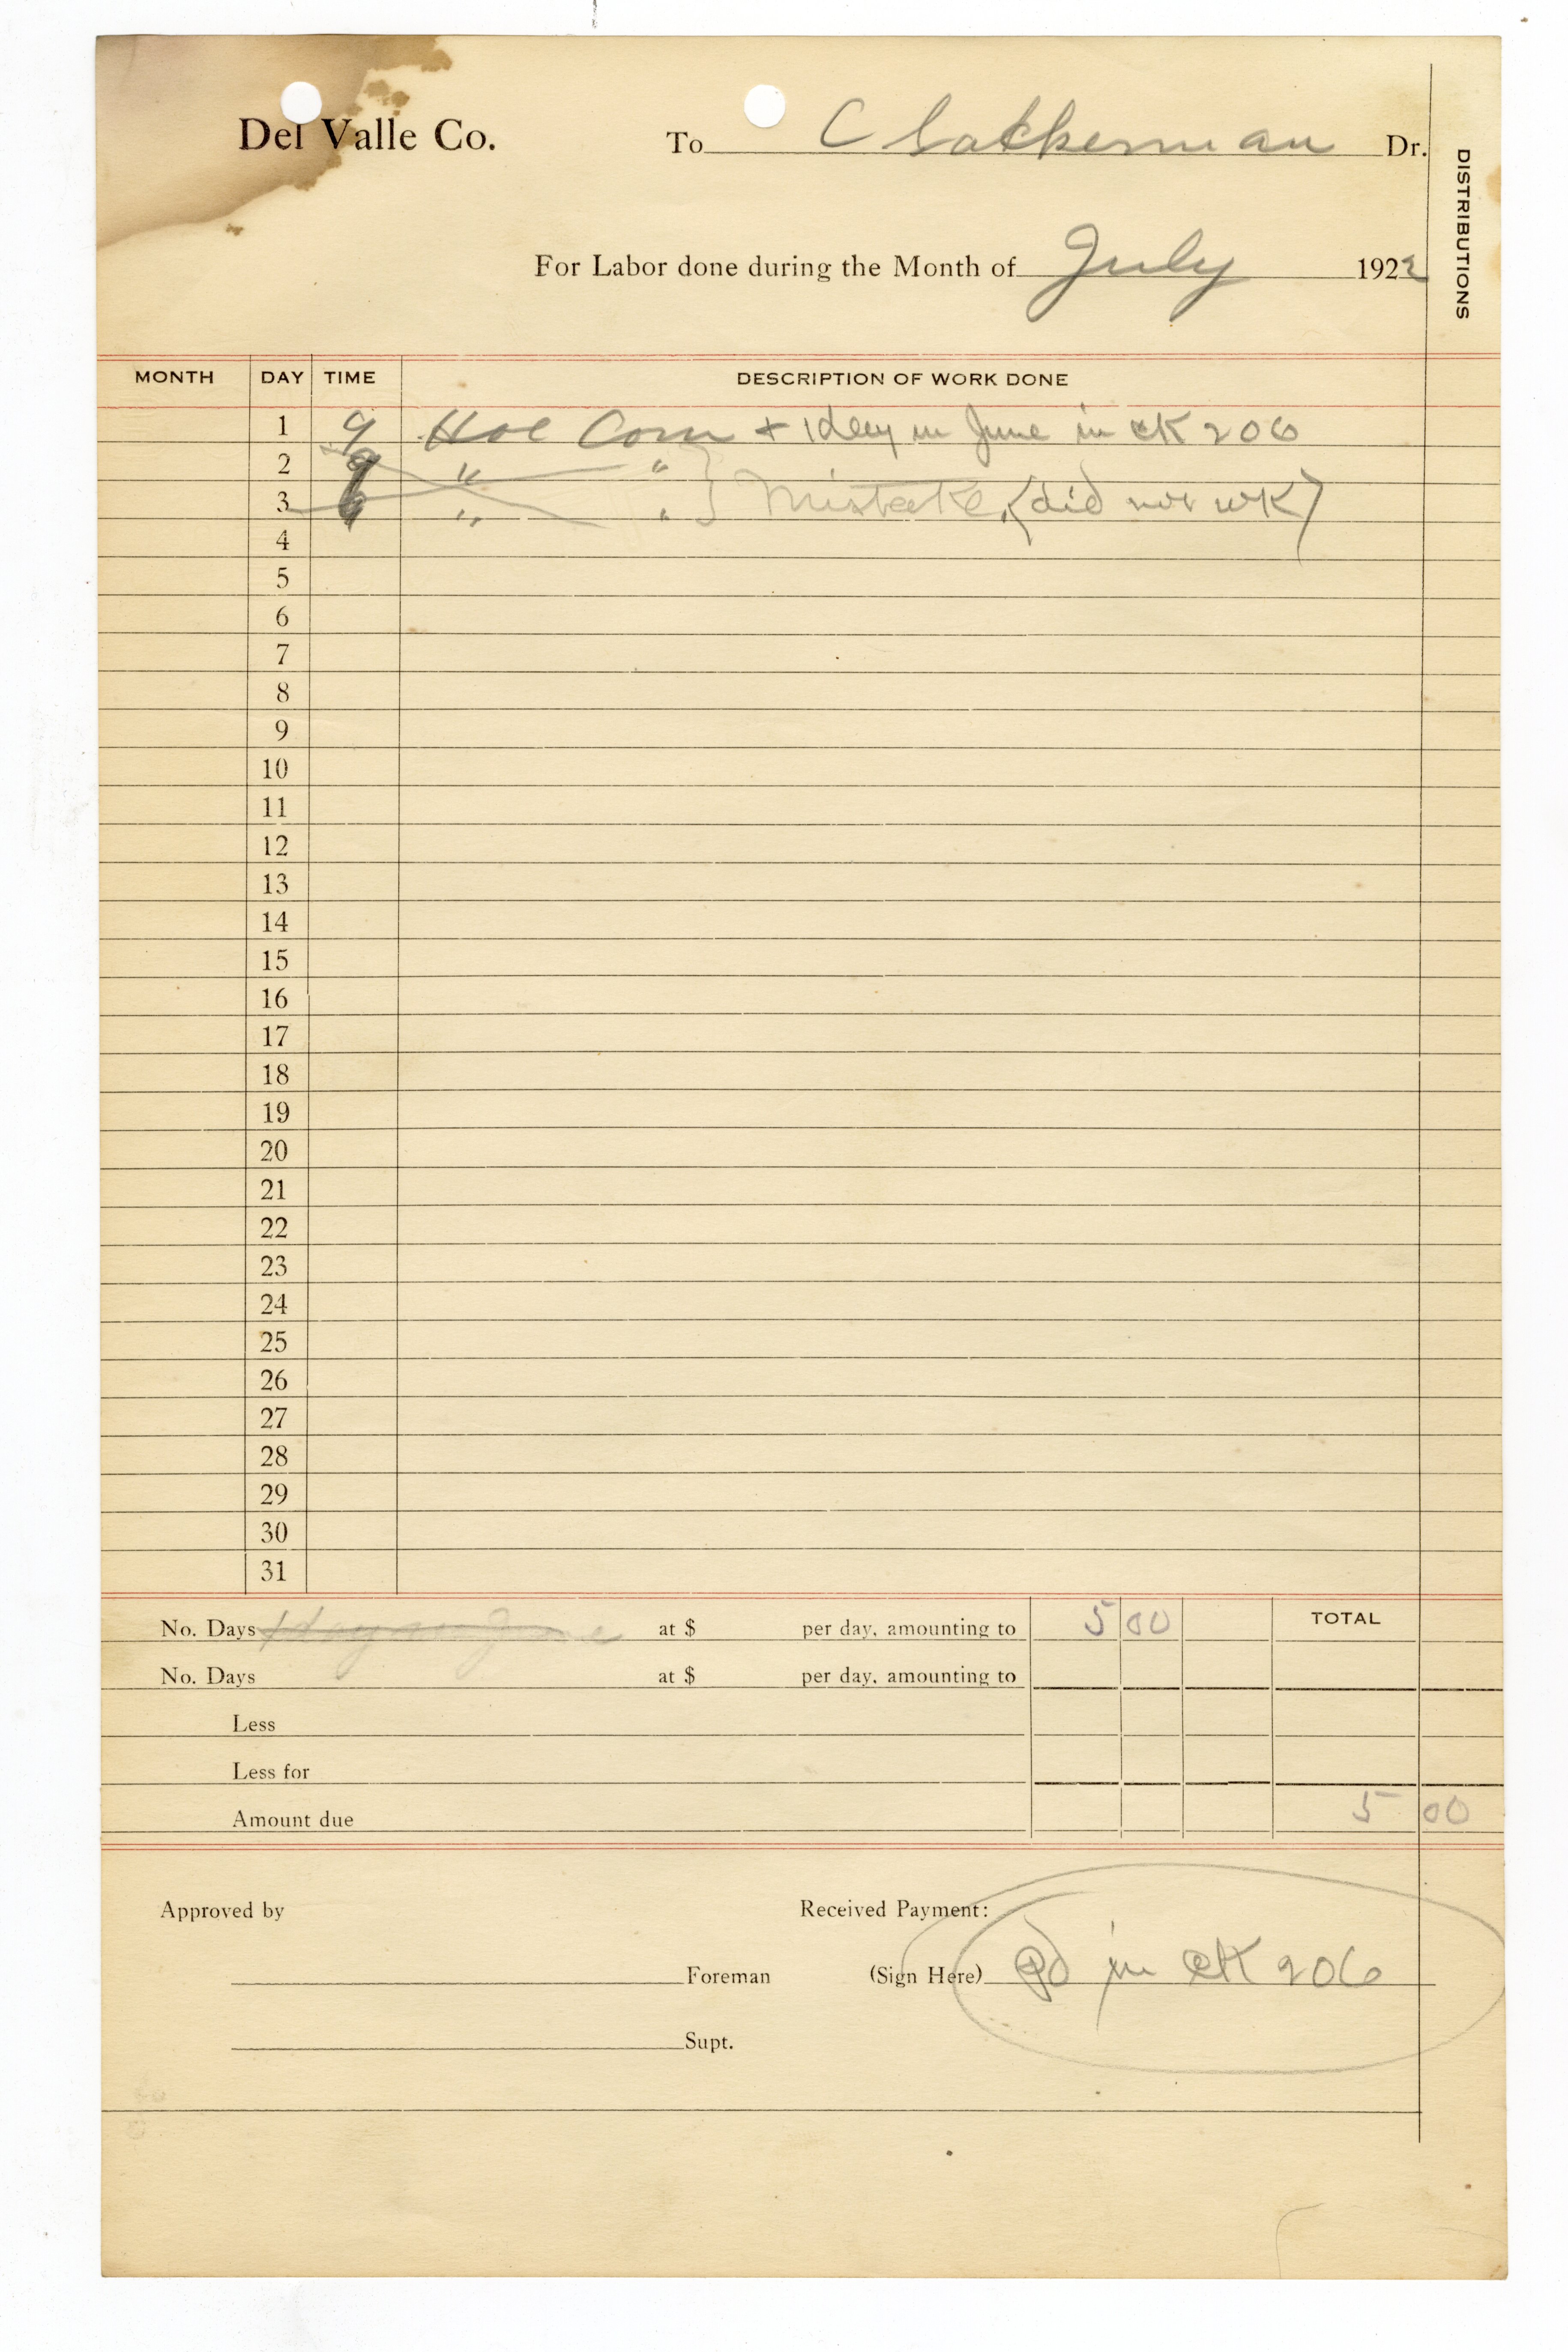 Del Valle Co. To C Dr.
For Labor done during the Month of July 1922
DISTRIBUTIONS
MONTH DAY TIME DESCRIPTION OF WORK DONE
1 9 Hoe Corn + 1 day in June in CK 206
2 9 " " } Mistake,
3 " " (did not wk)
4
5
6
7
8
9
10
11
12
13
14
15
16
17
18
19
20
21
22
23
24
25
26
27
28
29
30
31
No. Days 1 day in June at $ per day, amounting to 5 00 TOTAL
No. Days at $ per day, amounting to
Less
Less for
Amount due 5 00
Approved by Received Payment:
Foreman (Sign Here) Pd in CK 206
Supt.